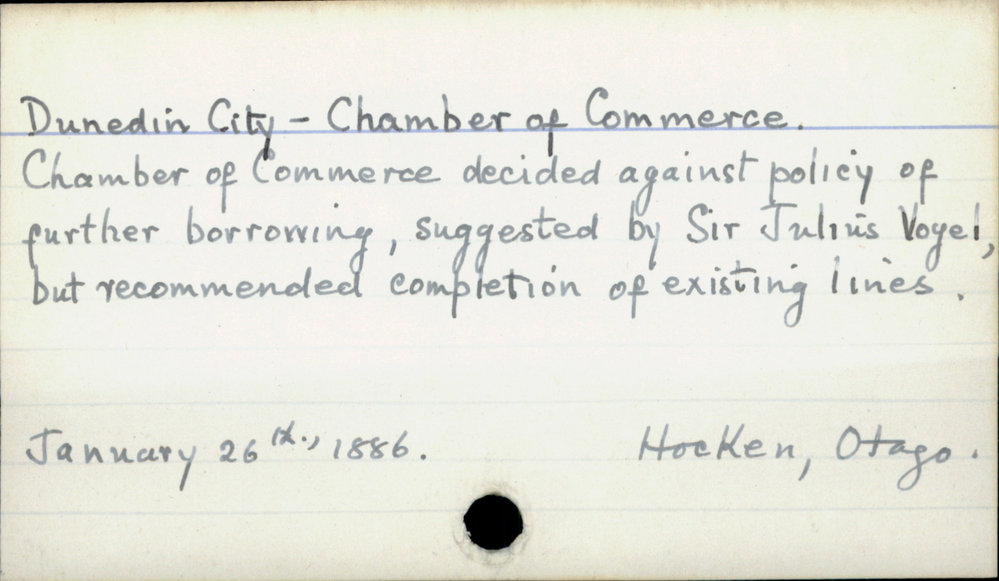 Dunedin City - Chamber of Commerce.
Chamber of Commerce decided against policy of
further borrowing, suggested by Sir Julius Vogel,
but recommended completion of existing lines.
January 26th., 1886. Hocken, Otago.